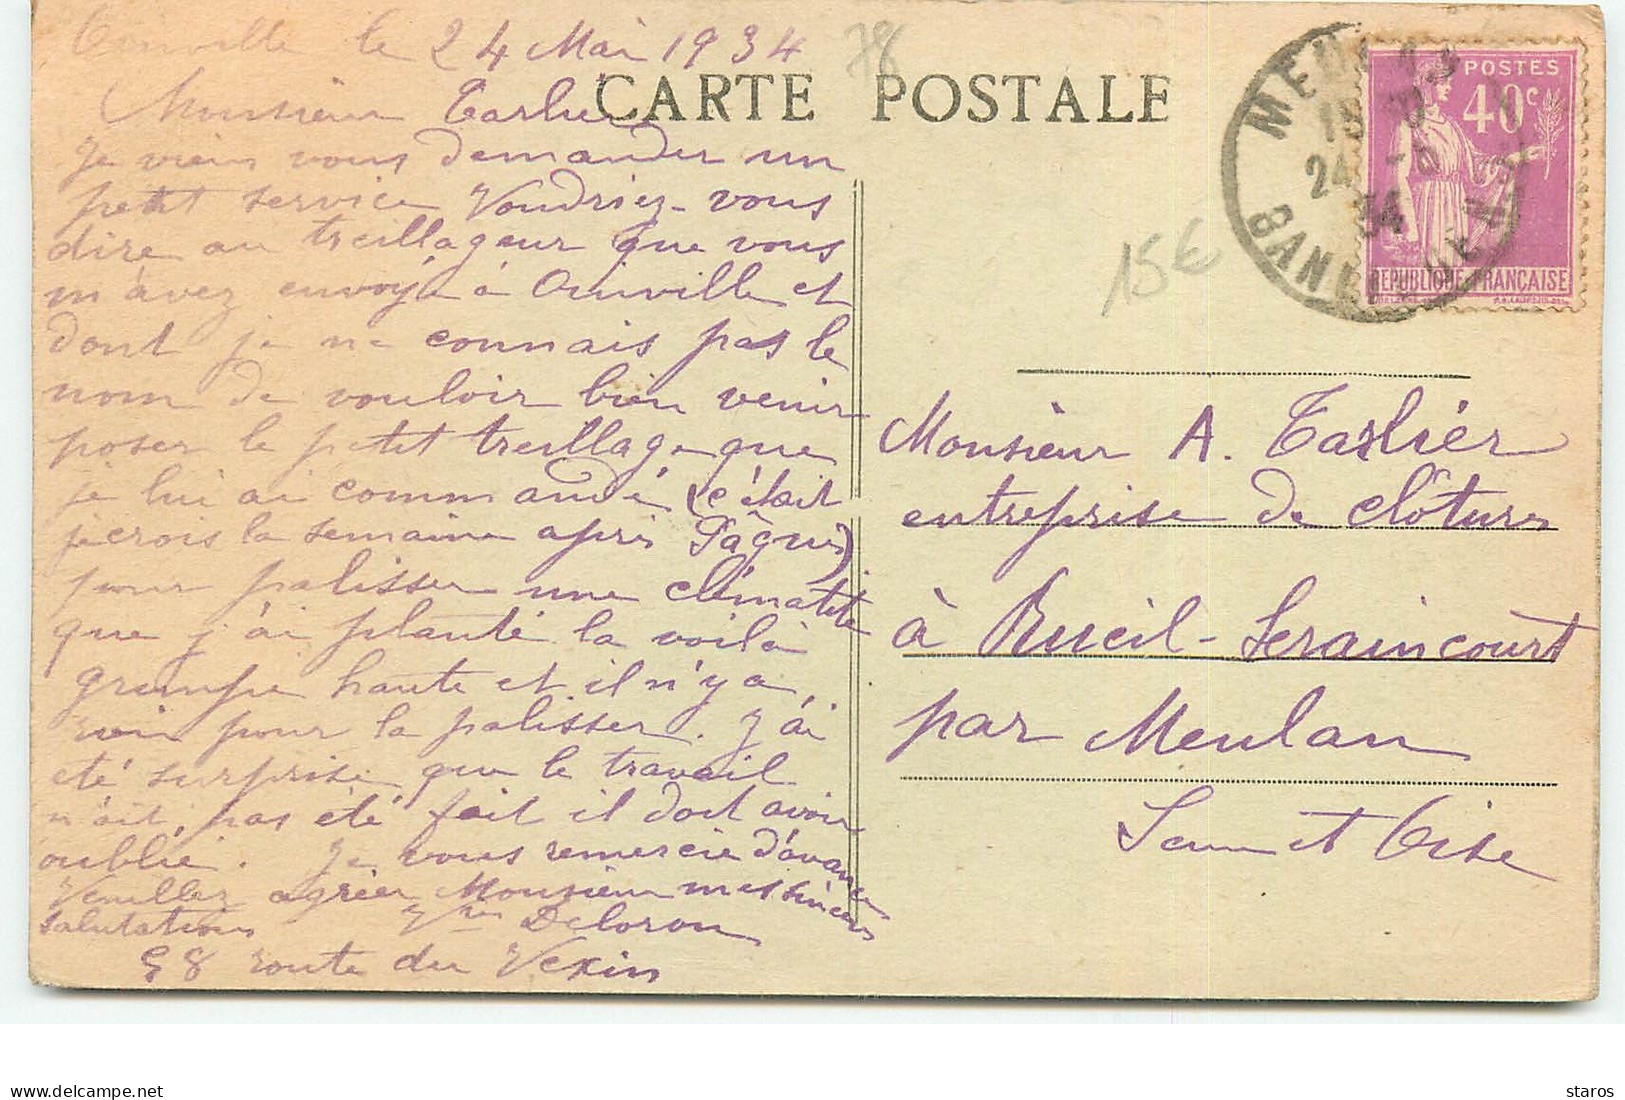 Oinville le 24 Mai 1934
78
CARTE POSTALE
Monsieur Tarlier
Je viens vous demander un
petit service Voudriez-vous
dire au treillageur que vous
m'avez envoyé à Oinville et
dont je ne connais pas le
nom de vouloir bien venir
poser le petit treillage que
je lui ai commandé (c'était
je crois la semaine après Pâques)
pour palisser une clématite
que j'ai planté la voilà
grimpe haute et il n'y a
rien pour la palisser. J'ai
été surprise que le travail
n'ait pas été fait il doit avoir
oublié. Je vous remercie d'avance
Veuillez agréer Monsieur mes sincères
salutations Deloron
98 route du Vexin
15€
MEULAN
15
24 -5
34
POSTES
40c
REPUBLIQUE FRANÇAISE
Monsieur A. Tarlier
entreprise de clôtures
à Rueil-Seraincourt
par Meulan
Seine et Oise
staros